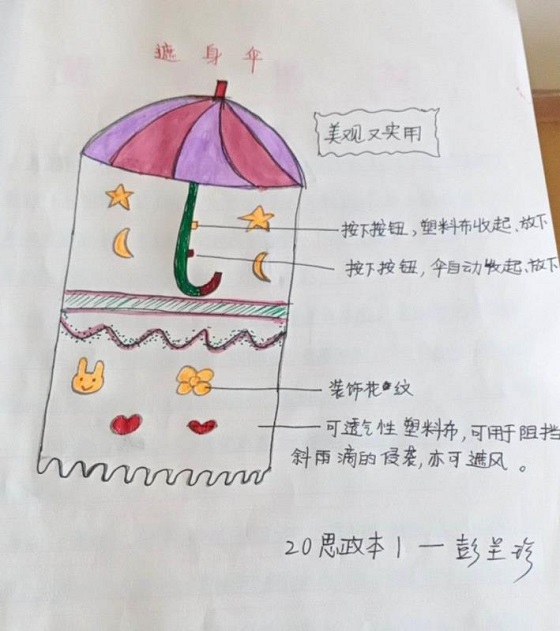 遮身伞
美观又实用
按下按钮，塑料布收起、放下
按下按钮，伞自动收起、放下
装饰花纹
可透气性塑料布，可用于阻挡
斜雨滴的侵袭，亦可遮风。
20思政本1一彭呈珍